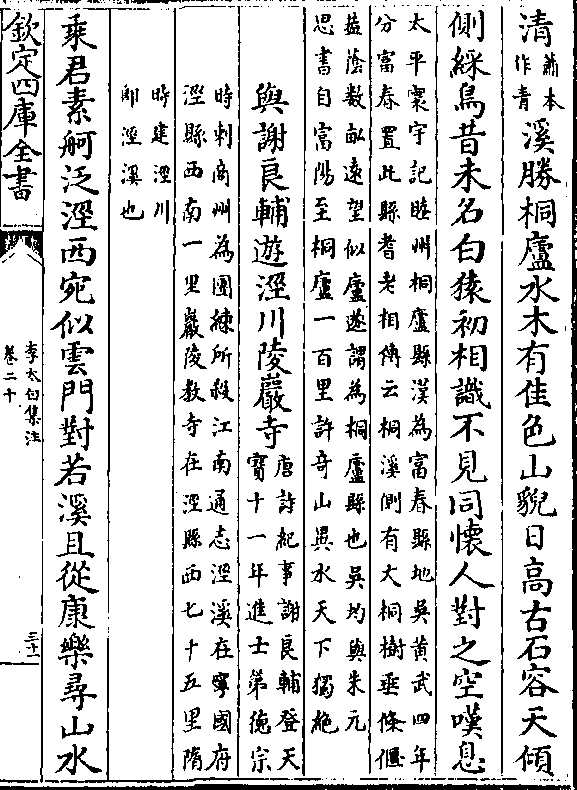 清蕭本作青溪勝桐廬水木有佳色山貌日高古石容天傾
側綵鳥昔未名白猿初相識不見同懷人對之空嘆息
太平寰宇記睦州桐廬縣漢為富春縣地吳黃武四年
分富春置此縣耆老相傳云桐溪側有大桐樹垂條偃
葢蔭數畝遠望似廬遂謂為桐廬縣也吳均與朱元
思書自富陽至桐廬一百里許奇山異水天下獨絶
與謝良輔遊涇川陵巖寺唐詩紀事謝良輔登天
寶十一年進士第德宗
時刺商州為團練所殺江南通志涇溪在寧國府
涇縣西南一里巖陵教寺在涇縣西七十五里隋
時建涇川
即涇溪也
乘君素舸泛涇西宛似雲門對若溪且從康樂尋山水
欽定四庫全書
李太白集注
卷二十
三十一